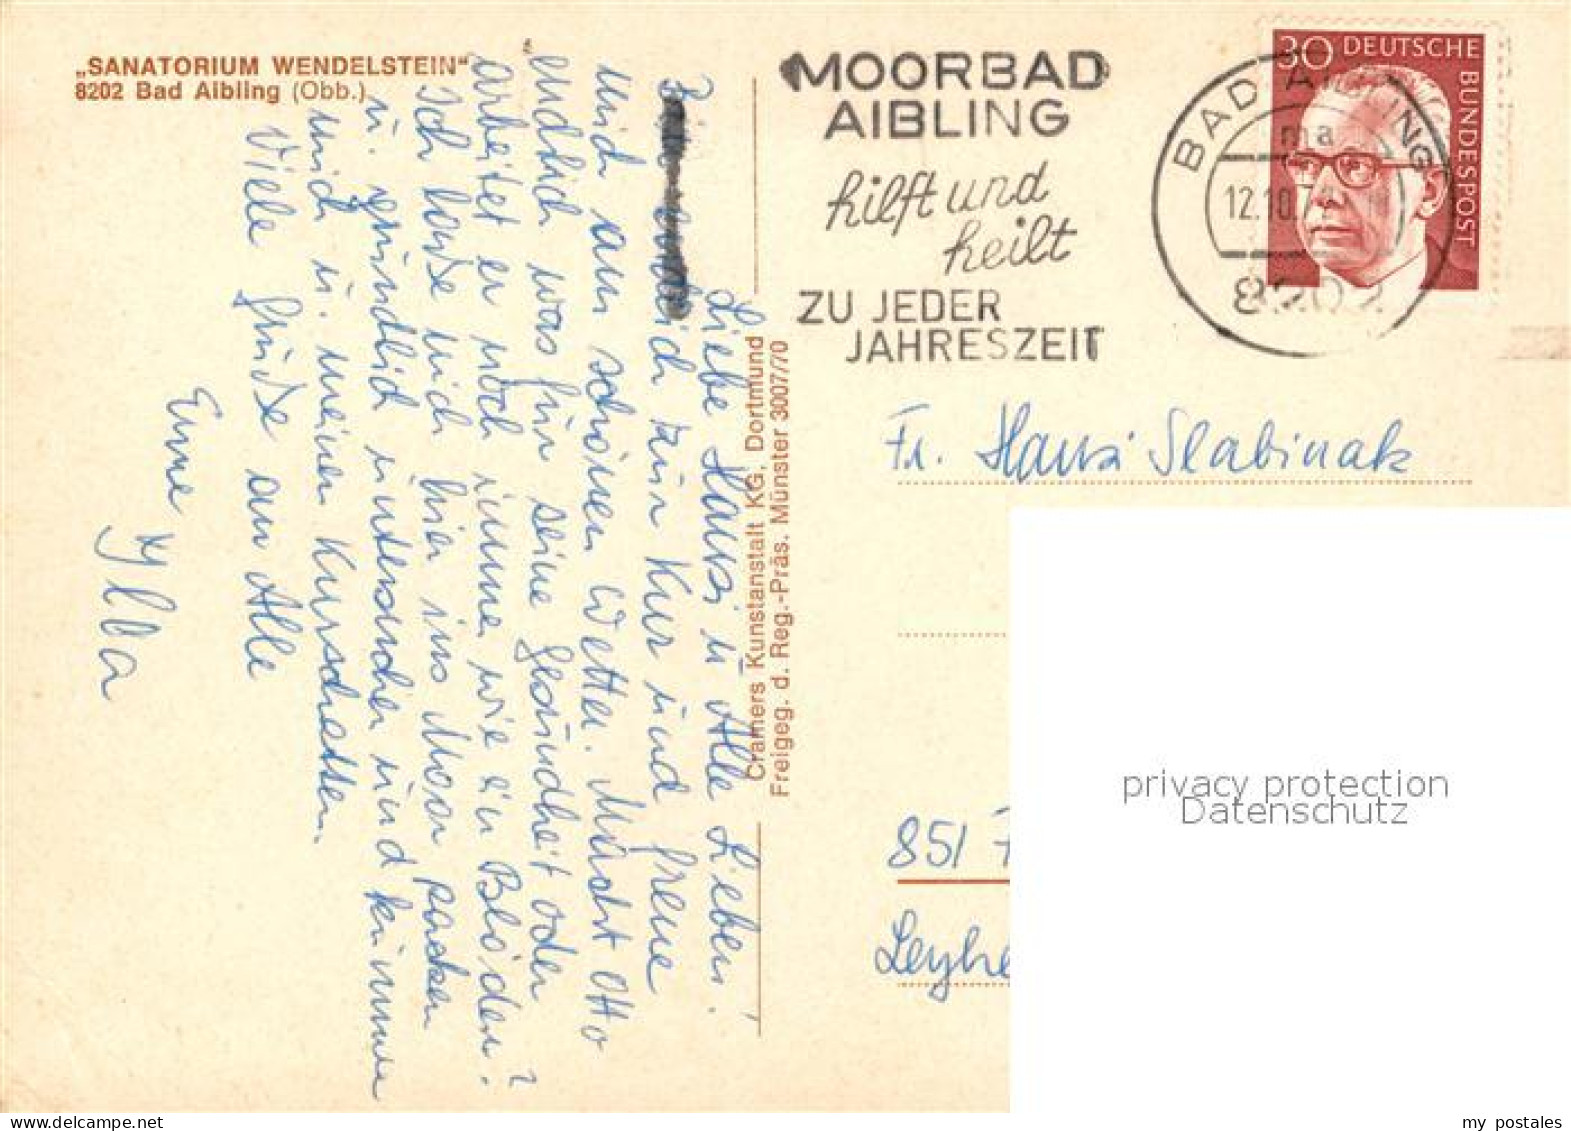 „SANATORIUM WENDELSTEIN“
8202 Bad Aibling (Obb.)
Liebe Hansi u Alle Lieben!
Bin endlich zur Kur und freue
mich am schönen Wetter. Macht Otto
endlich was für seine Gesundheit oder
arbeitet er noch immer wie ein Blöder?
Ich lasse mich hier ins Moor packen
u. gründlich untersuchen und kümmere
mich u. meinen Kurschatten.
Viele Grüße an Alle
Eure
Ylla
Cramers Kunstanstalt KG, Dortmund
Freigeg. d. Reg.-Präs. Münster 3007/70
MOORBAD
AIBLING
hilft und
heilt
ZU JEDER
JAHRESZEIT
BAD AIBLING
ma
12.10.
8202
30 DEUTSCHE
BUNDESPOST
Fr. Hansi Slabinak
851
Leyhe
privacy protection
Datenschutz
my postales